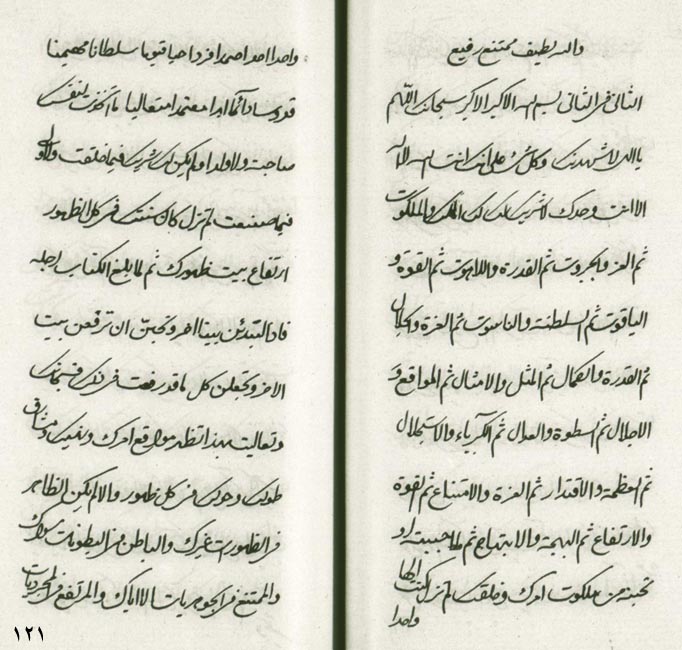 واله لطیف ممتنع رفیع
الثانی فی الثانی بسم الله الاکبر الاکبر سبحانک اللهم
یا الهی لاشهدنک وکل شیء علی انک انت الله لا اله
الا انت وحدک لا شریک لک لک الملک والملکوت
ثم العز والجبروت ثم القدرة واللاهوت ثم القوة و
الیاقوت ثم السلطنة والناسوت ثم العزة والجلال
ثم القدرة والکمال ثم المثل والامثال ثم المواقع و
الاجلال ثم السطوة والعدال ثم الکبریاء والاستجلال
ثم العظمة والاقتدار ثم العزة والامتناع ثم القوة
والارتفاع ثم البهجة والابتهاج ثم ما احببته او
تحبنه من ملکوت امرک وخلقک لم تزل کنت الها
واحدا
واحدا احدا صمدا فردا حیا قیوما سلطانا مهیمنا
قدوسا دائما ابدا معتمدا متعالیا ما اتخذت لنفسک
صاحبة ولا ولدا ولم یکن لک شریک فیما خلقت ولا ولی
فیما صنعت لم تزل کان سنتک فی کل الظهور
ارتفاع بیت ظهورک ثم لما یبلغ الکتاب اجله
فاذا لتبدئن بیتا اخر وتحبن ان ترفعن بیت
الاخر وتجعلن کل ما قد رفعت فی ذلک فسبحانک
وتعالیت بهذا تظهر مواقع امرک ونهیک ومشارق
طولک وحولک فی کل ظهور والا لم یکن الظاهر
فی الظهورات غیرک والباطن فی البطونات سواک
والممتنع فی الجوهریات الا ایاک والمرتفع فی المجردیات
١٢١